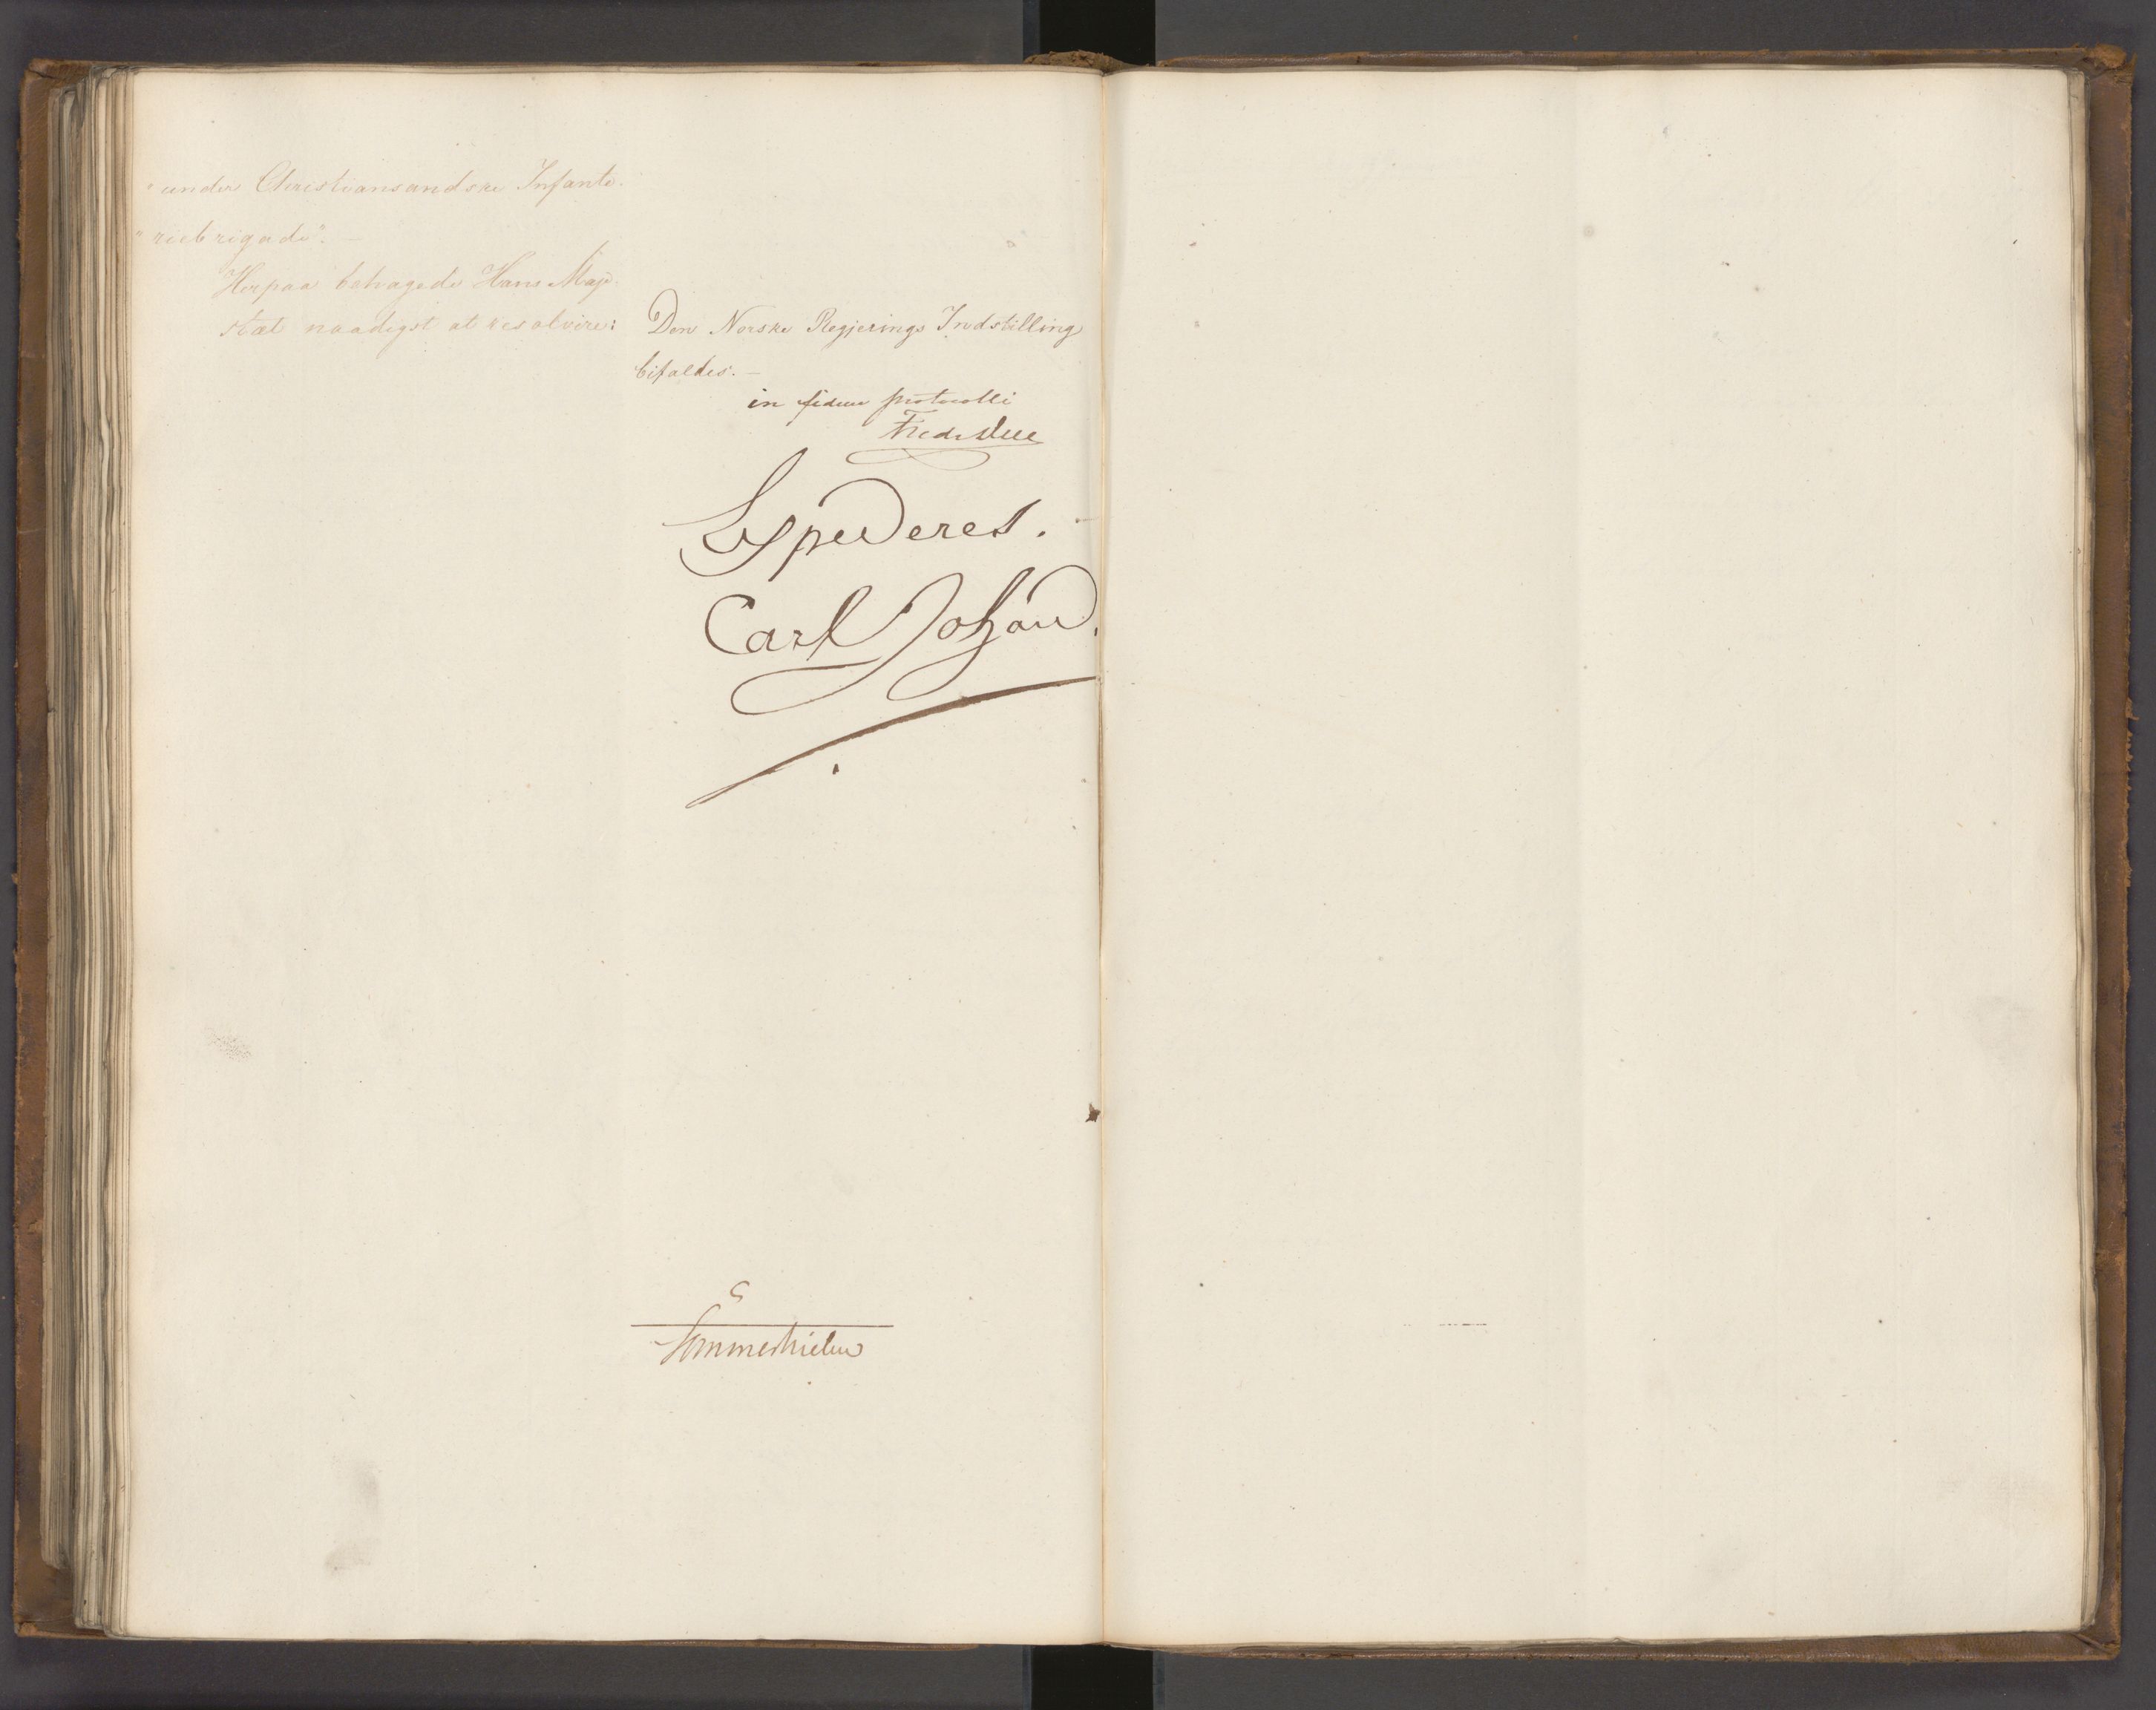 "under Christiansandske Infante-
"riebrigade". —
Herpaa behagede Hans Maje-
stæt naadigst at resolvere:
Den Norske Regjerings Indstilling
bifaldes. —
in fidem protocolli
Fredr Due
Expederes.
Carl Johan.
Sommerhielm